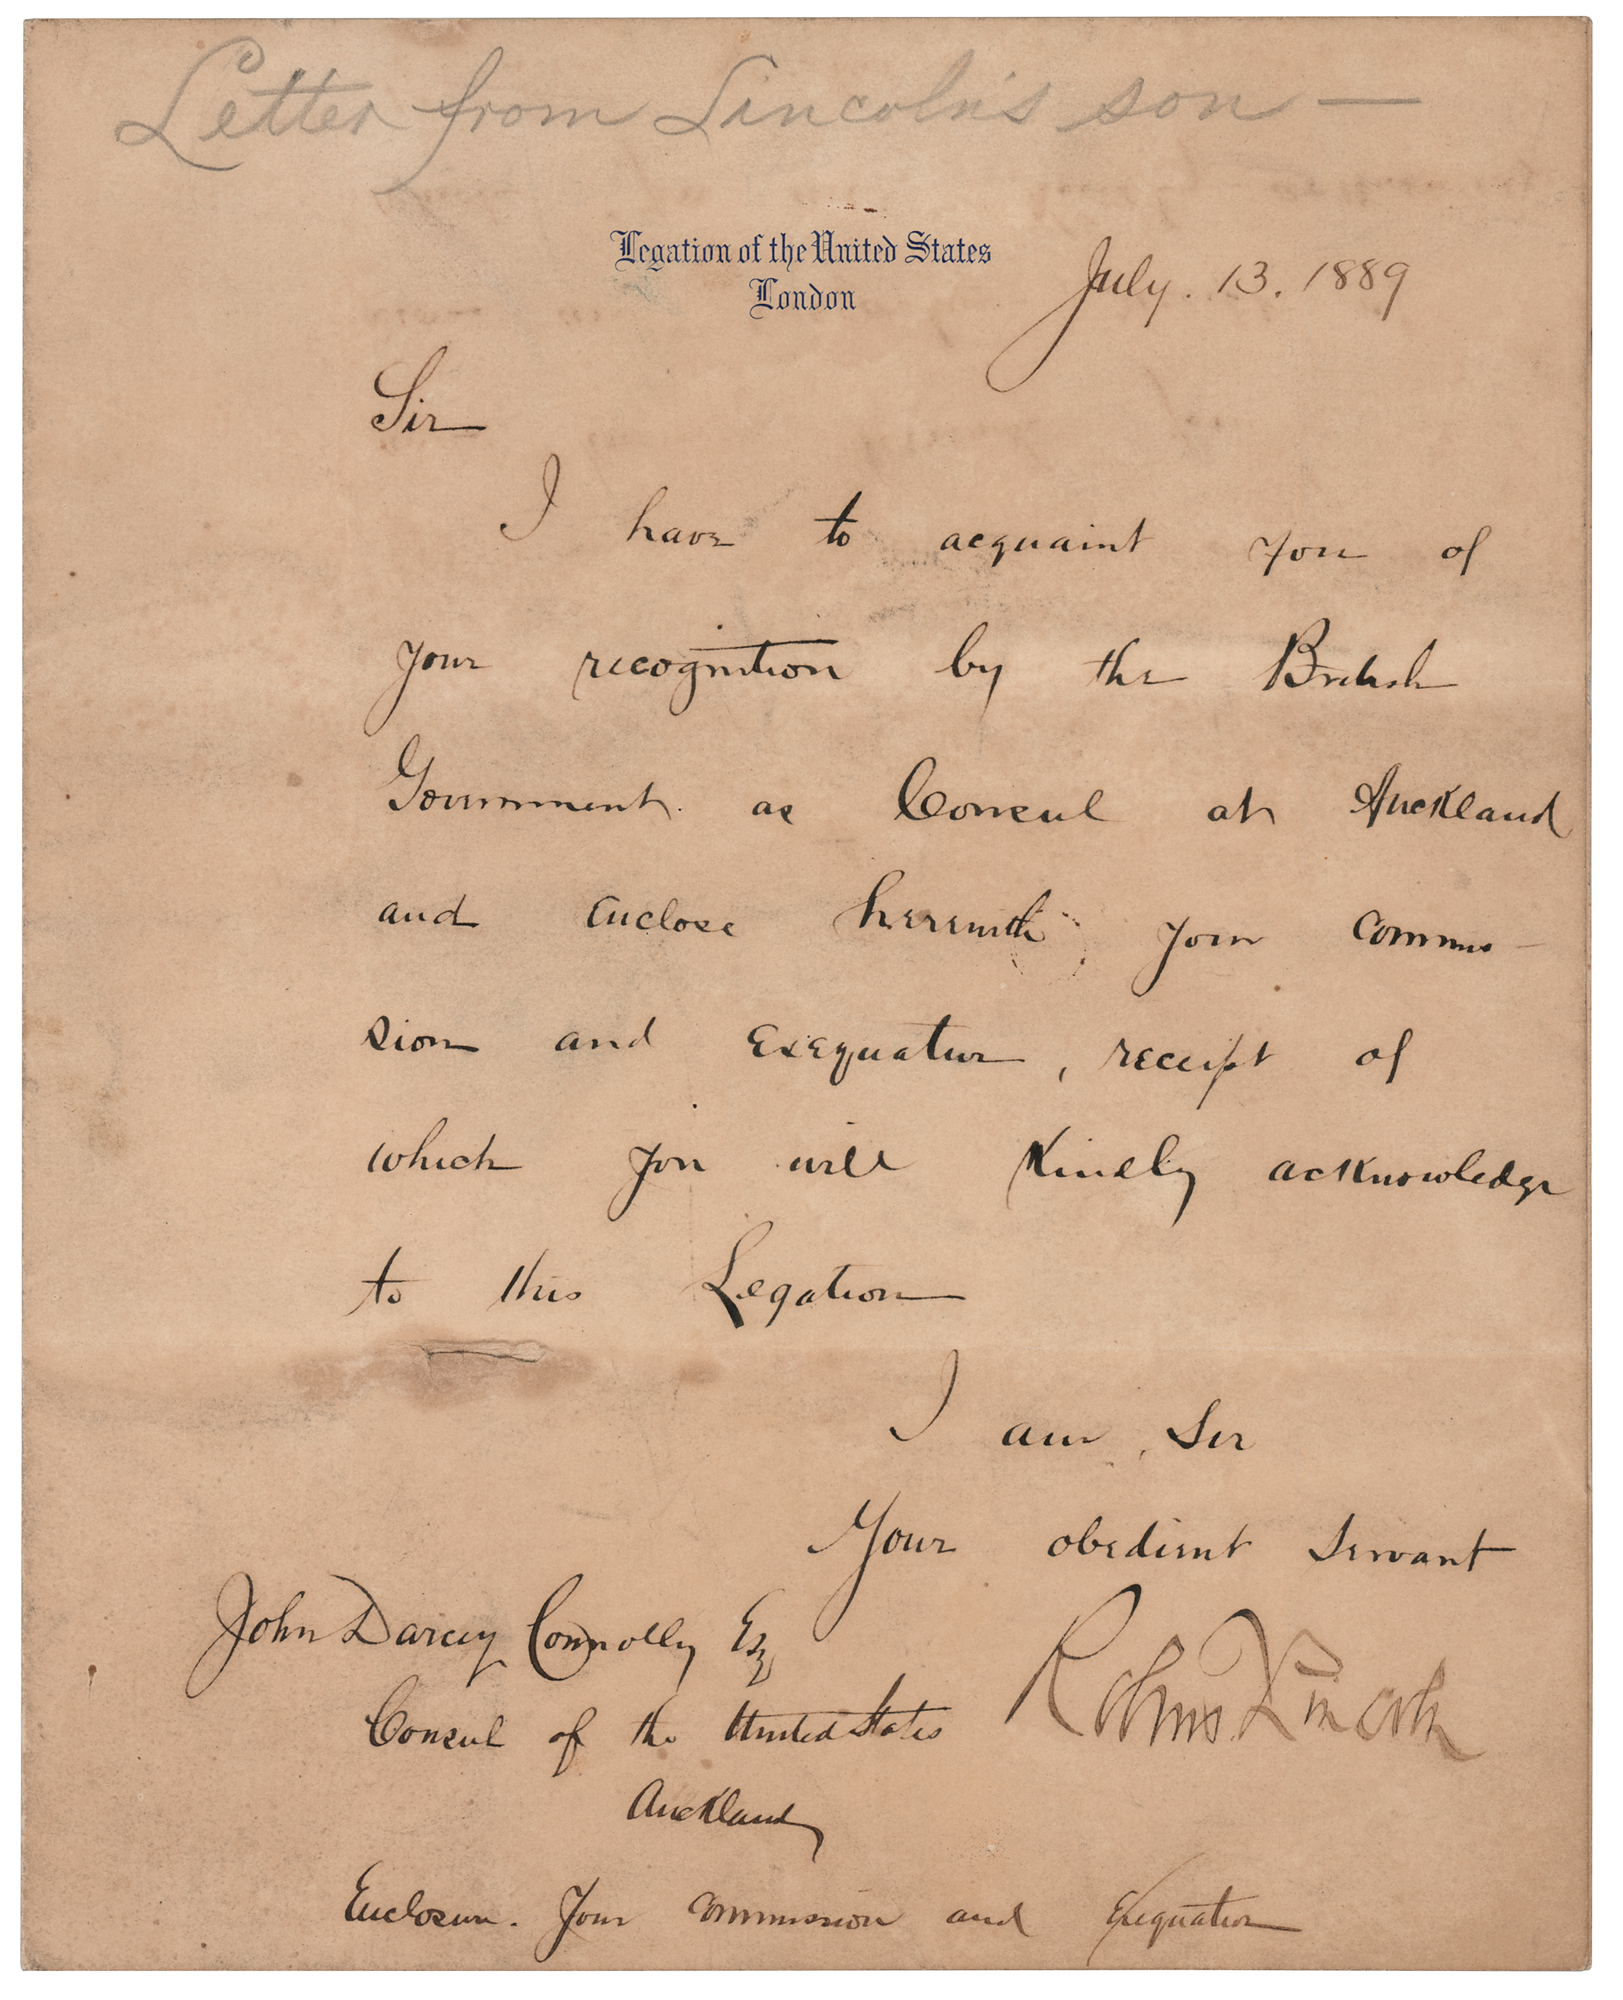 Letter from Lincoln's son —
Legation of the United States
London
July. 13. 1889
Sir
I have to acquaint you of
your recognition by the British
Government as Consul at Auckland
and enclose herewith your commis-
sion and Exequatur, receipt of
which you will kindly acknowledge
to this Legation
I am, Sir
Your obedient Servant
John Darcey Connolly Esq
Robert Lincoln
Consul of the United States
Auckland
Enclosure. Your commission and Exequatur